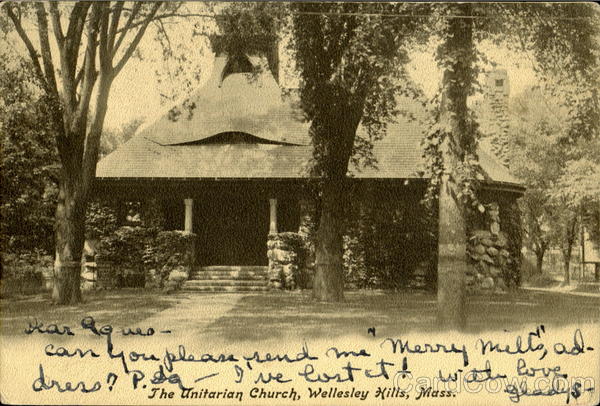 Dear Agnes -
can you please send me "Merry Milts", ad-
dress? P.dq - I've lost it! with love
Gladys
The Unitarian Church, Wellesley Hills, Mass.
CardCow.com